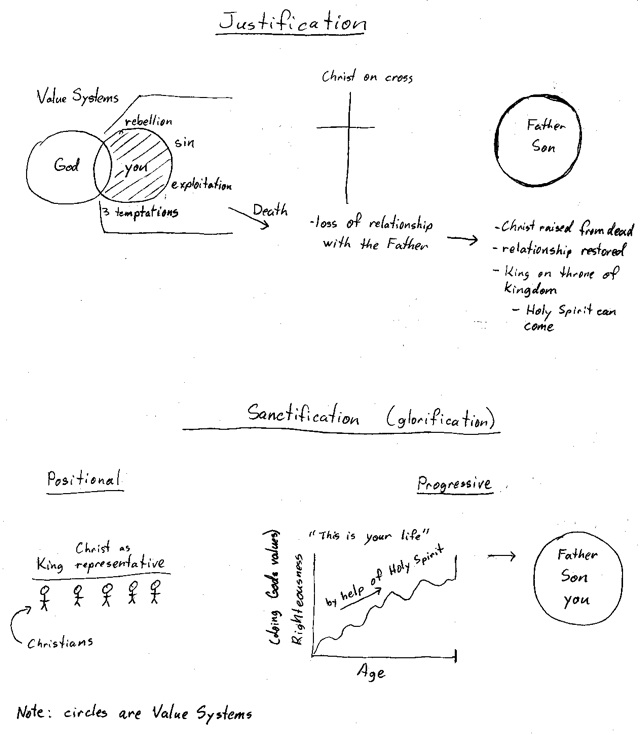 Justification
Value Systems
rebellion
sin
God
you
exploitation
3 temptations
Death
Christ on cross
-loss of relationship
with the Father
Father
Son
-Christ raised from dead
-relationship restored
-King on throne of
Kingdom
-Holy Spirit can
come
Sanctification (glorification)
Positional
Christ as
King representative
Christians
Progressive
"This is your life"
(doing Gods values)
Righteousness
by help of Holy Spirit
Age
Father
Son
you
Note: circles are Value Systems